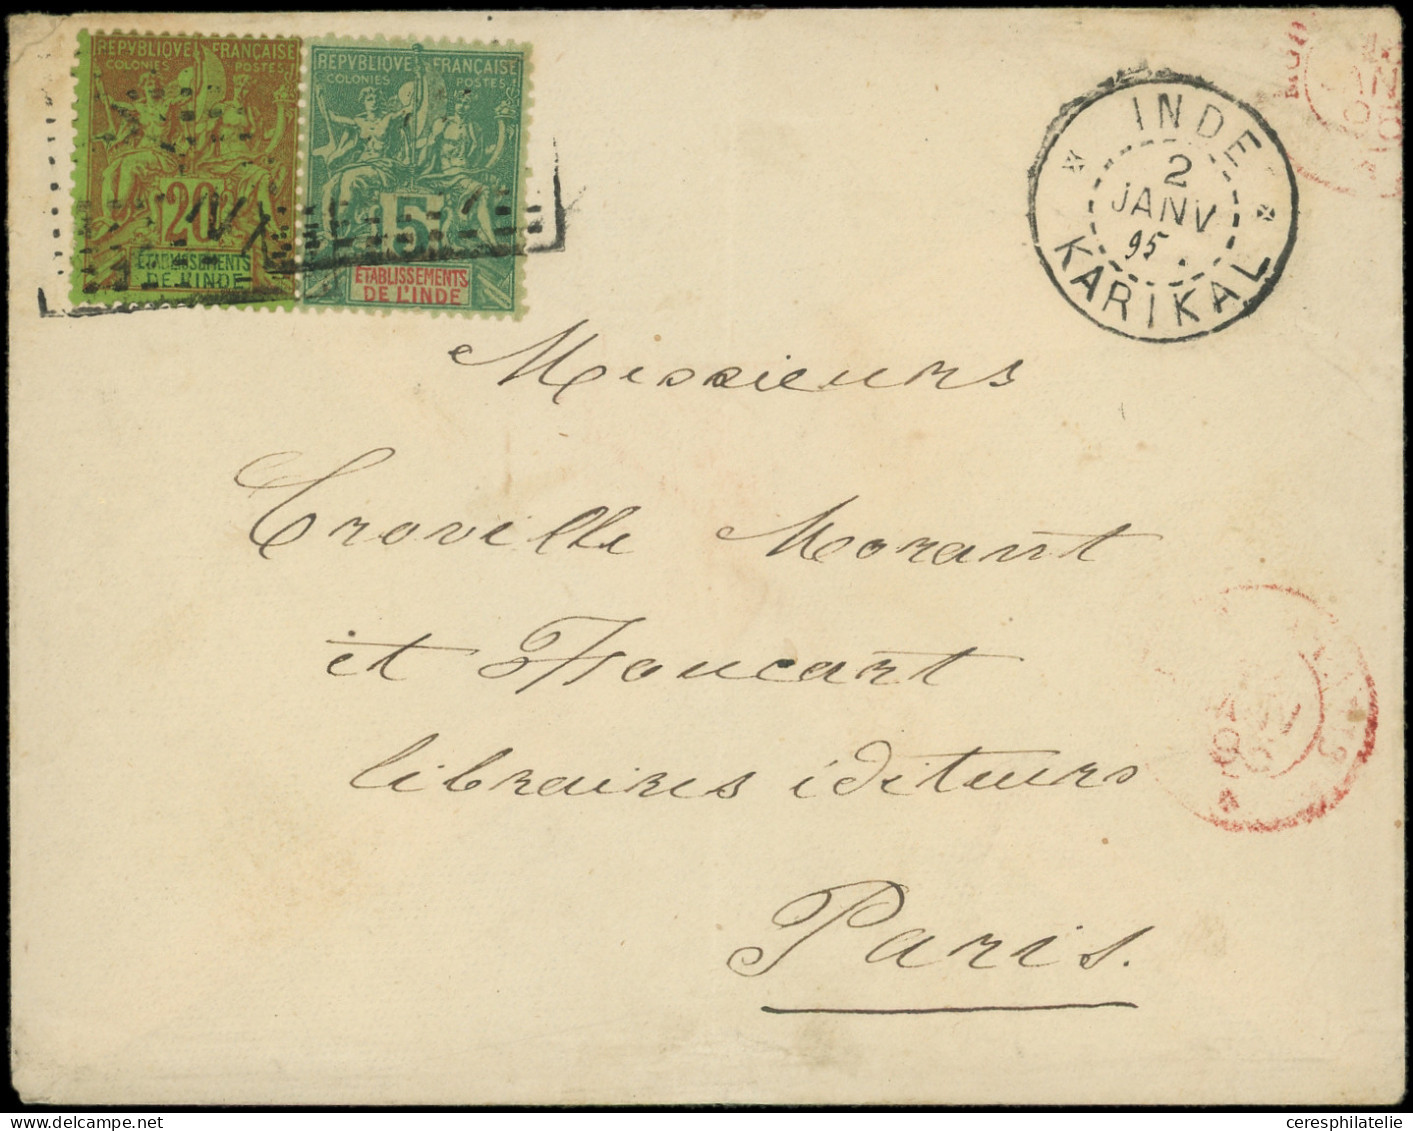 REPVBLIQVE FRANÇAISE
COLONIES POSTES
20
ÉTABLISSEMENTS
DE L'INDE
REPVBLIQVE FRANÇAISE
COLONIES POSTES
5
ÉTABLISSEMENTS
DE L'INDE
INDE
2
JANV
95
KARIKAL
Messieurs
Croville Morant
et Foucart
libraires éditeurs
Paris.
www.delcampe.net
ceresphilatelie